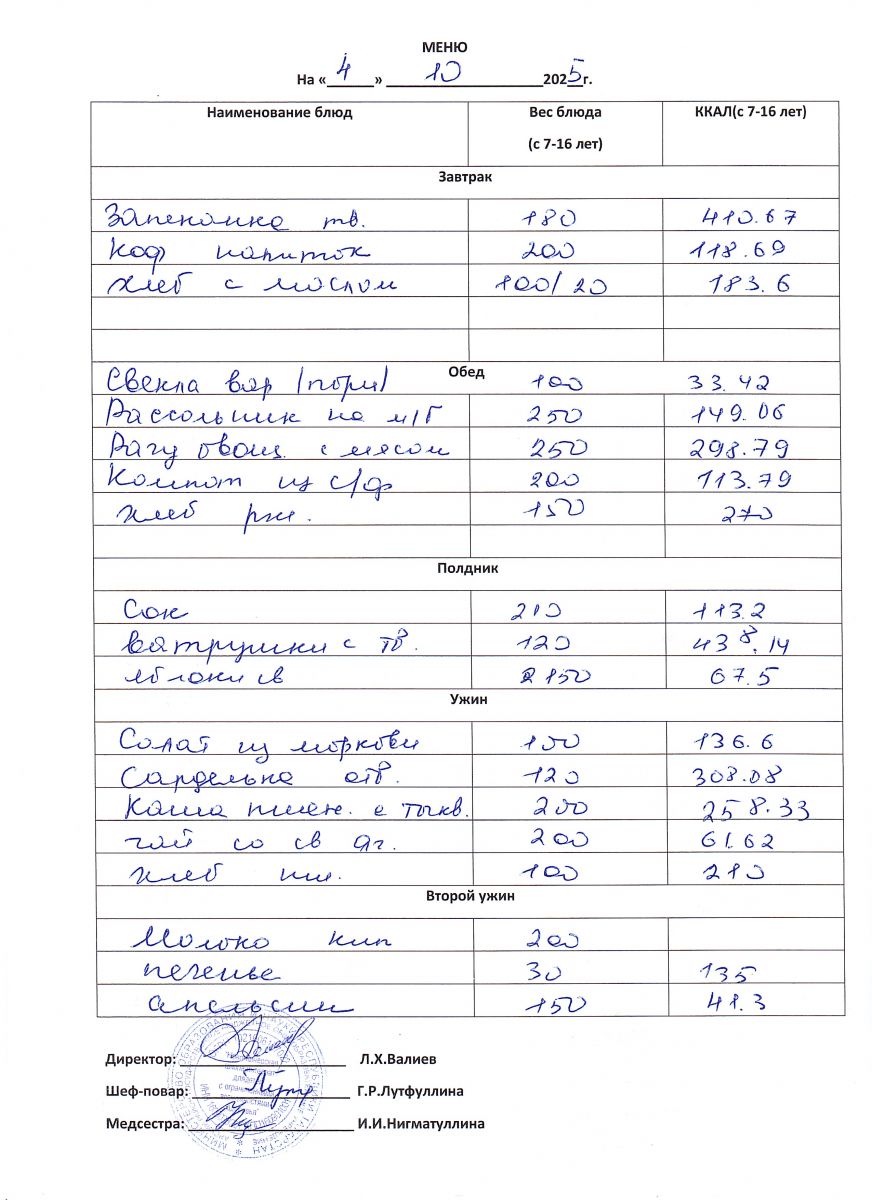 МЕНЮ
На « 4 » 10 2025 г.
Наименование блюд Вес блюда (с 7-16 лет) ККАЛ(с 7-16 лет)
Завтрак
Запеканка тв. 180 410.67
Коф напиток 200 118.69
Хлеб с маслом 100/20 183.6
Обед
Свекла вар /порц/ 100 33.42
Рассольник на м/б 250 149.06
Рагу овощ. с мясом 250 298.79
Компот из с/ф 200 113.79
Хлеб рж. 150 270
Полдник
Сок 210 113.2
ватрушки с тв. 120 438.14
яблоки св 150 67.5
Ужин
Салат из моркови 100 136.6
Сарделька отв. 120 308.08
Каша пшен. с тыкв. 200 258.33
чай со св яг. 200 61.62
Хлеб пш. 100 210
Второй ужин
Молоко кип 200
печенье 30 135
апельсин 150 41.3
Директор: Л.Х.Валиев
Шеф-повар: Г.Р.Лутфуллина
Медсестра: И.И.Нигматуллина